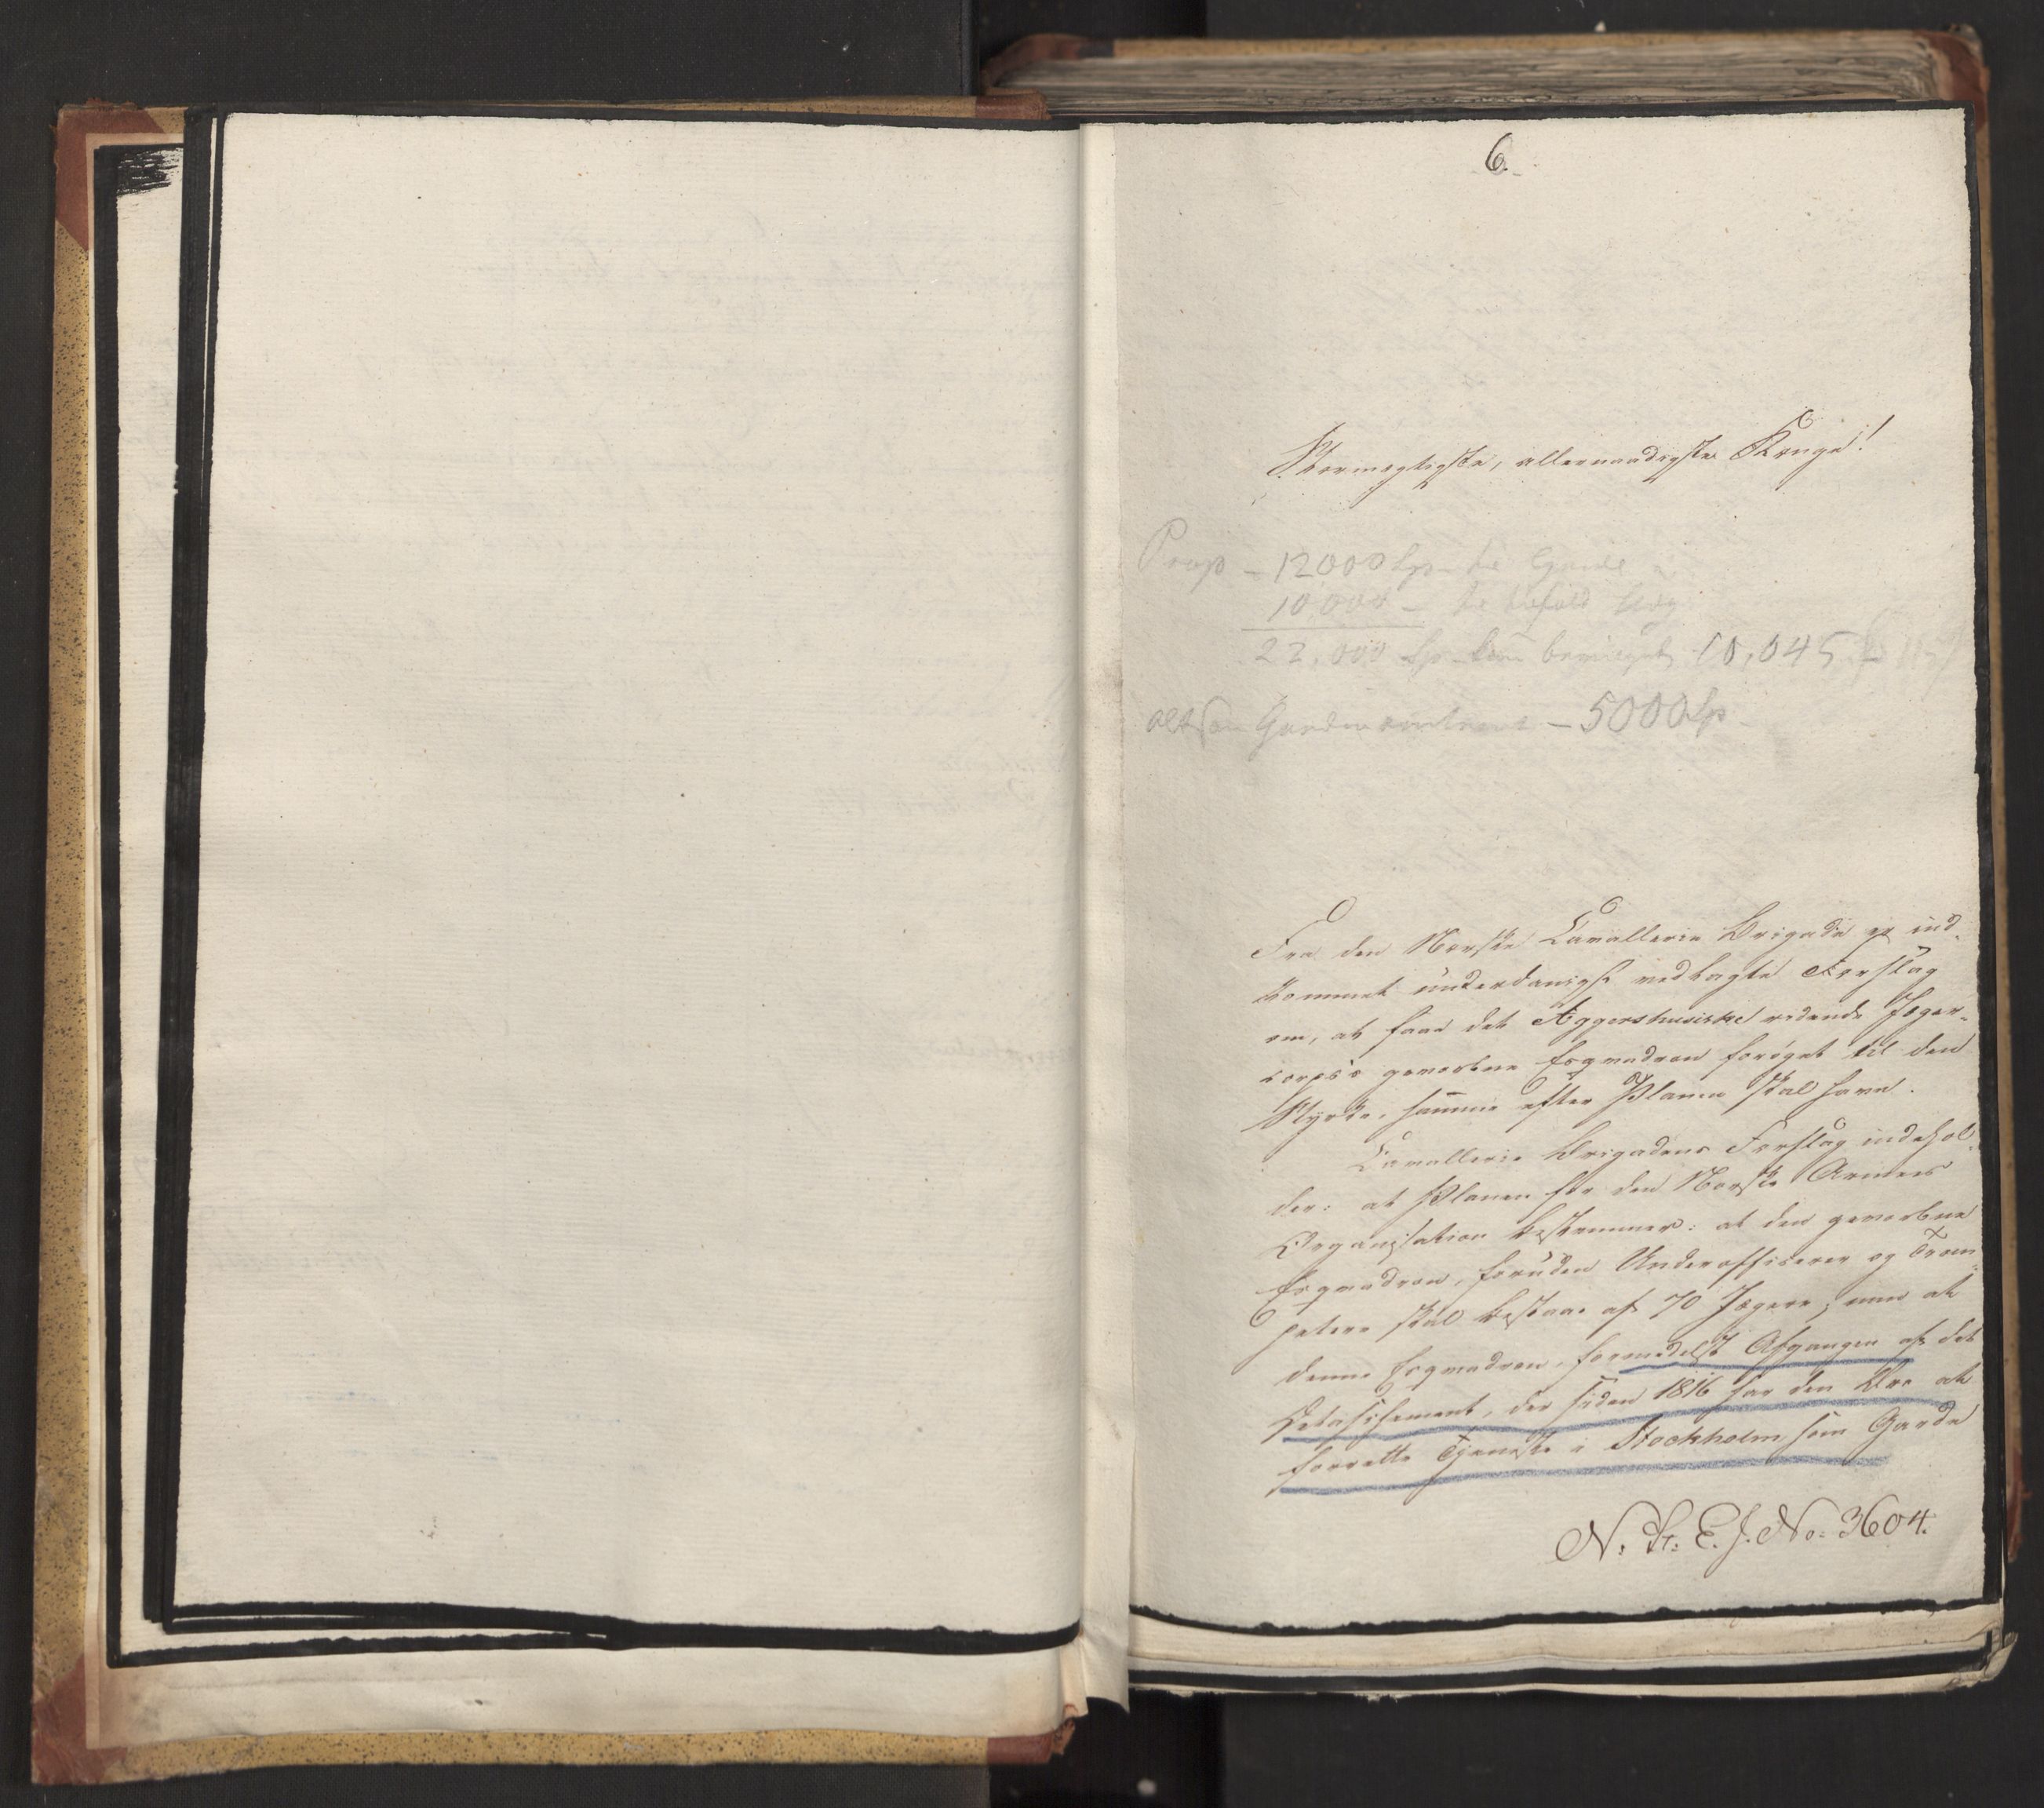 6.
Stormægtigste, allernaadigste Konge!
Prop – 12000 Sp. – til Garde
10,000 –
22,000 Sp. 10,045
altsaa Garden omtrent – 5000 Sp.
Fra den Norske Cavallerie Brigade er ind-
kommet underdanigst vedlagte Forslag
om, at faae det Aggershusiske ridende Jæger-
corps's gevorbne Esqvadron forøget til den
Styrke, samme efter Planen skal have.
Cavallerie Brigadens Forslag indehol-
der: at Planen for den Norske Armees
Organisation bestemmer: at den gevorbne
Esqvadron, foruden Underofficerer og Trom-
petere skal bestaae af 70 Jægere; men at
denne Esqvadron, formedelst Afgangen af det
Detaschement, der siden 1816 har den Ære at
forrette Tjeneste i Stockholm som Garde
N. St. E. J. No. 3604.